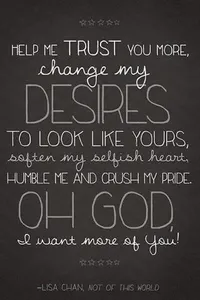 HELP ME TRUST YOU MORE,
change my
DESIRES
TO LOOK LIKE YOURS,
soften my selfish heart,
HUMBLE ME AND CRUSH MY PRIDE.
OH GOD,
I want more of You!
~LISA CHAN, NOT OF THIS WORLD